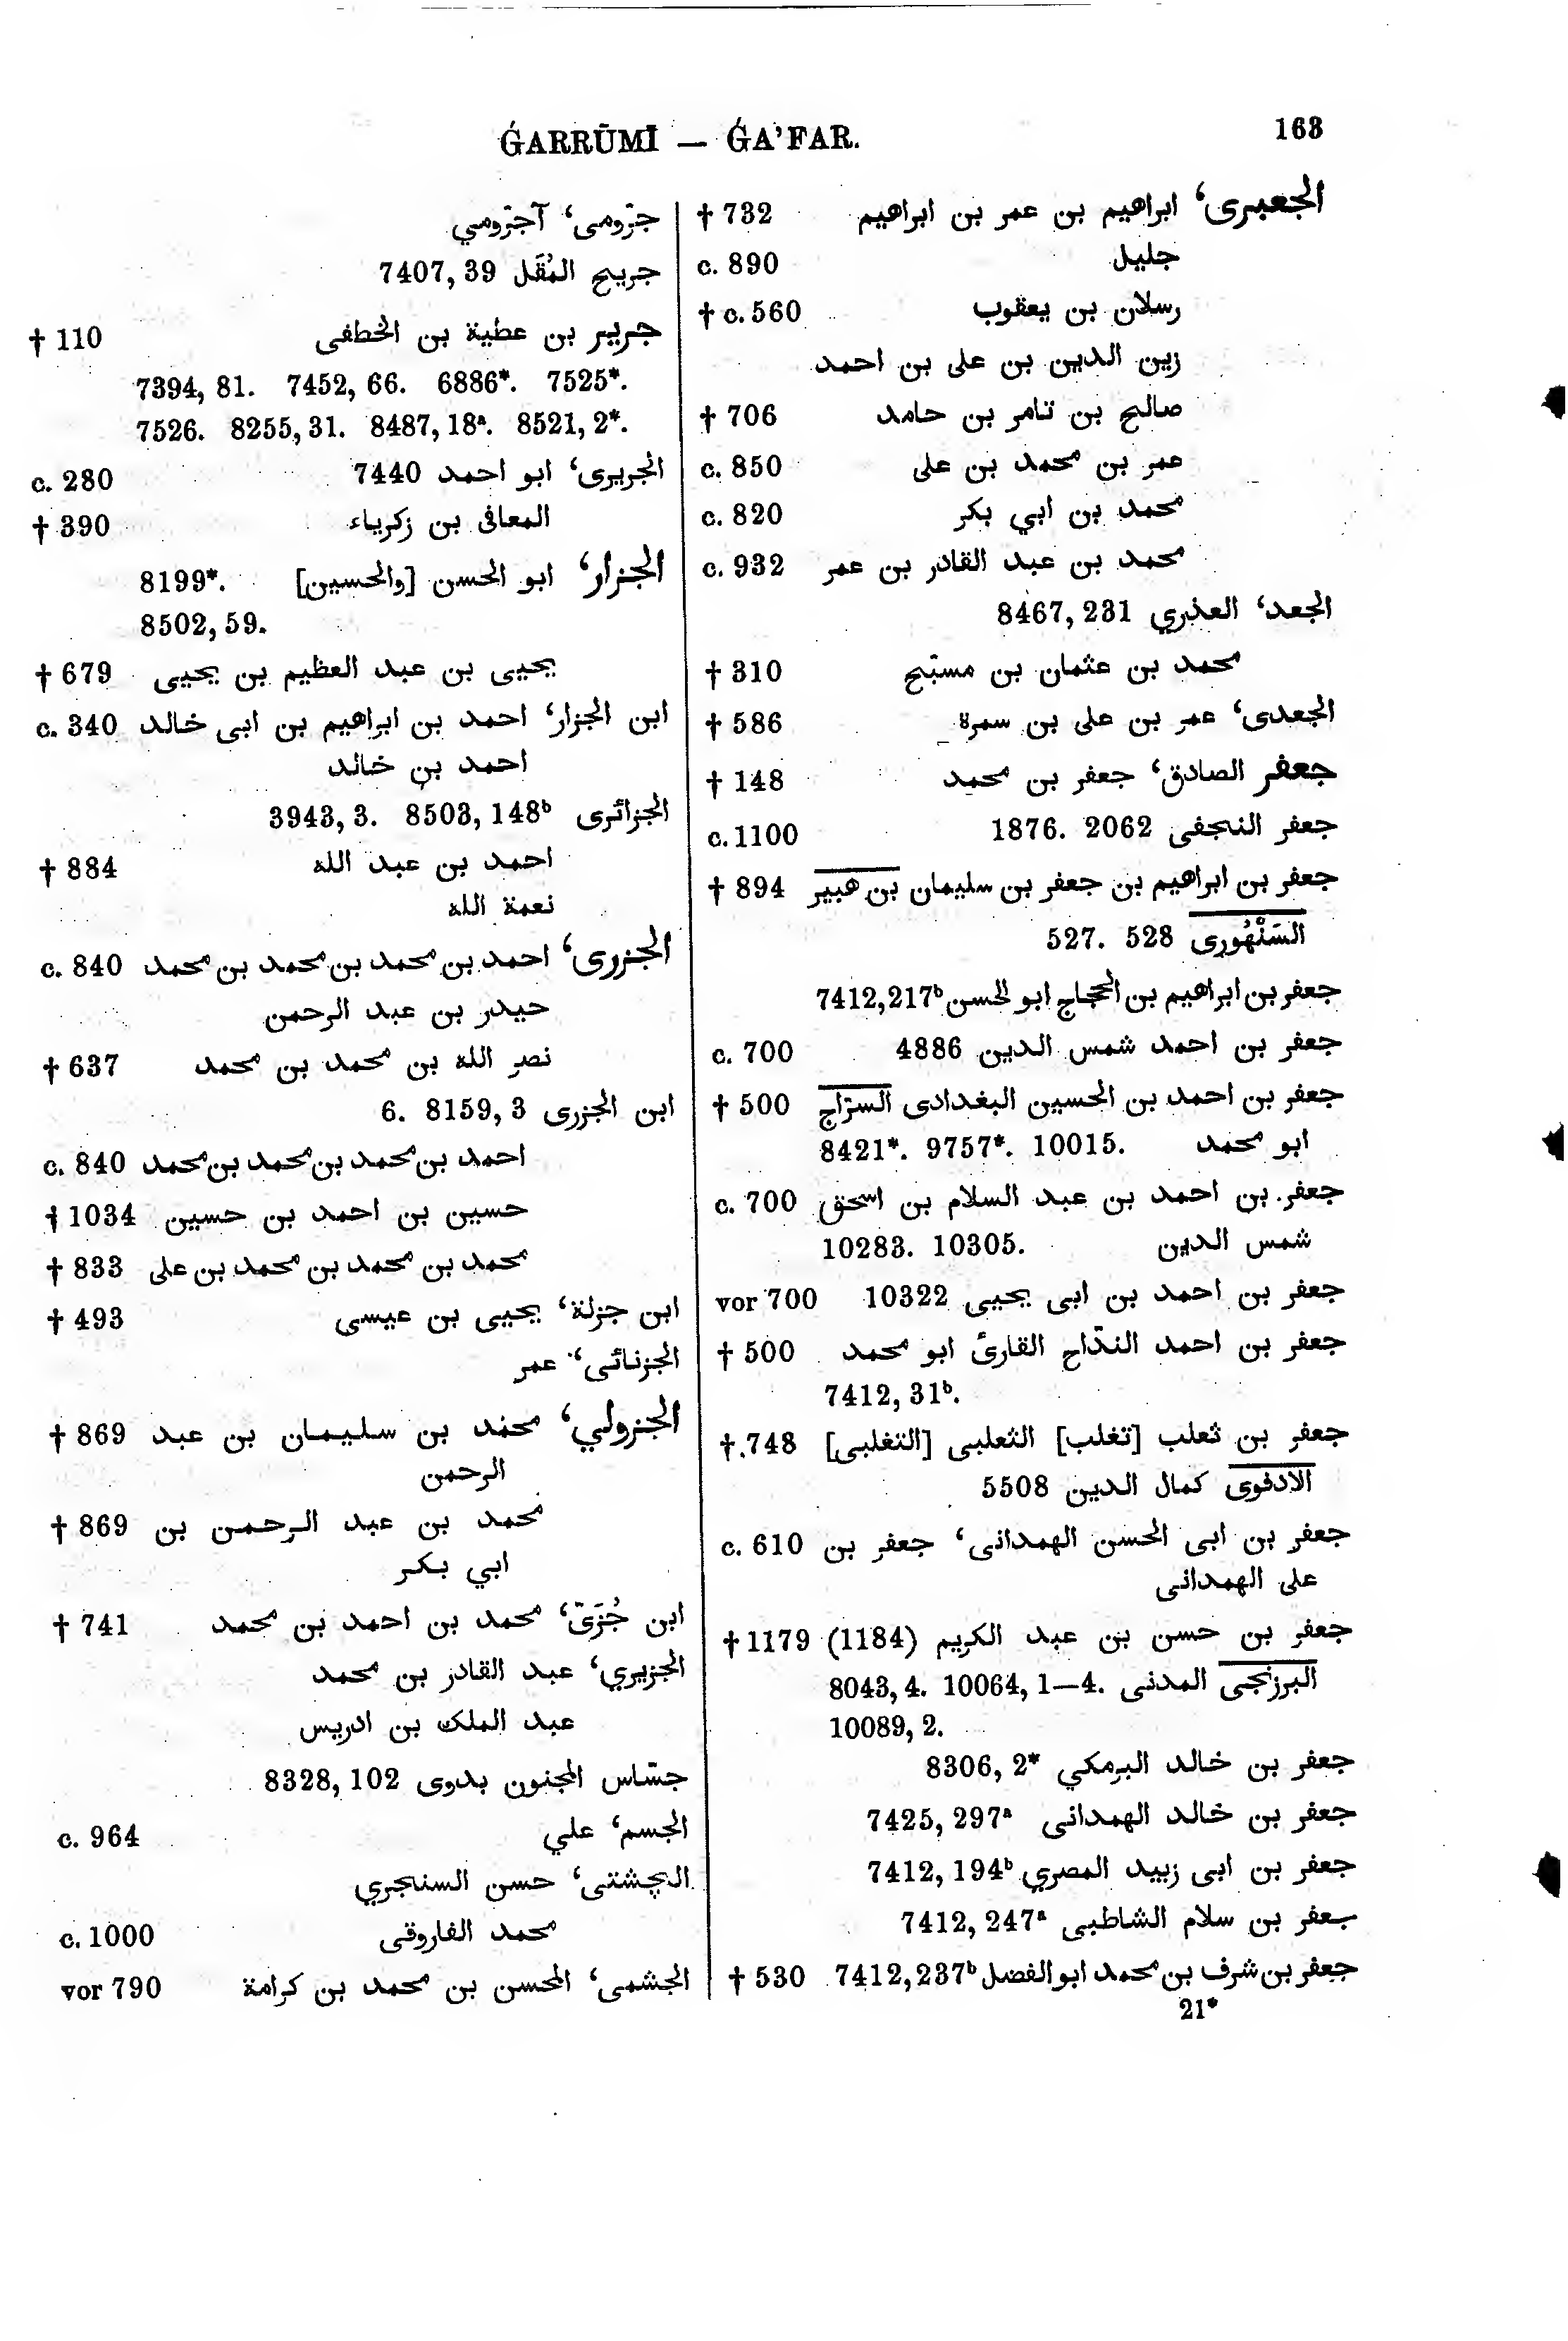 ǴARRŪMĪ — ǴA’FAR. 163
جرّومى‘ آجرّومي
جريج المُقَل 7407, 39
جرير بن عطية بن الخطفى † 110
7394, 81. 7452, 66. 6886*. 7525*.
7526. 8255, 31. 8487, 18ᵃ. 8521, 2*.
الجريرى‘ ابو احمد 7440 c. 280
المعافى بن زكرياء † 390
الجزار‘ ابو الحسن [والحسين] 8199*.
8502, 59.
يحيى بن عبد العظيم بن يحيى † 679
ابن الجزار‘ احمد بن ابراهيم بن ابى خالد c. 340
احمد بن خالد
الجزائرى 3943, 3. 8503, 148ᵇ
احمد بن عبد الله † 884
نعمة الله
الجزرى‘ احمد بن محمد بن محمد بن محمد c. 840
حيدر بن عبد الرحمن
نصر الله بن محمد بن محمد † 637
ابن الجزرى 6. 8159, 3
احمد بن محمد بن محمد بن محمد c. 840
حسين بن احمد بن حسين † 1034
محمد بن محمد بن محمد بن على † 833
ابن جزلة‘ يحيى بن عيسى † 493
الجزنائى‘ عمر
الجزولي‘ محمد بن سليمان بن عبد † 869
الرحمن
محمد بن عبد الرحمن بن † 869
ابي بكر
ابن جُزَىّ‘ محمد بن احمد بن محمد † 741
الجزيري‘ عبد القادر بن محمد
عبد الملك بن ادريس
جسّاس المجنون بدوى 8328, 102
الجسم‘ علي c. 964
الچشتى‘ حسن السنجري
محمد الفاروقى c. 1000
الجشمى‘ المحسن بن محمد بن كرامة vor 790
الجعبرى‘ ابراهيم بن عمر بن ابراهيم † 732
جليل c. 890
رسلان بن يعقوب † c. 560
زين الدين بن على بن احمد
صالح بن تامر بن حامد † 706
عمر بن محمد بن على c. 850
محمد بن ابي بكر c. 820
محمد بن عبد القادر بن عمر c. 932
الجعد‘ العذري 8467, 231
محمد بن عثمان بن مسبّح † 310
الجعدى‘ عمر بن على بن سمرة † 586
جعفر الصادق‘ جعفر بن محمد † 148
جعفر النجفى 1876. 2062 c. 1100
جعفر بن ابراهيم بن جعفر بن سليمان بن هبير † 894
السَنْهُورى 527. 528
جعفر بن ابراهيم بن الحجّاج ابو الحسن 7412, 217ᵇ
جعفر بن احمد شمس الدين 4886 c. 700
جعفر بن احمد بن الحسين البغدادى السرّاج † 500
ابو محمد 8421*. 9757*. 10015.
جعفر بن احمد بن عبد السلام بن اسحق c. 700
شمس الدين 10283. 10305.
جعفر بن احمد بن ابى يحيى 10322 vor 700
جعفر بن احمد الندّاح القارئ ابو محمد † 500
7412, 31ᵇ.
جعفر بن ثعلب [تغلب] الثعلبى [التغلبى] † 748
الادفوى كمال الدين 5508
جعفر بن ابى الحسن الهمدانى‘ جعفر بن c. 610
على الهمدانى
جعفر بن حسن بن عبد الكريم (1184) † 1179
البرزنجى المدنى 8043, 4. 10064, 1—4.
10089, 2.
جعفر بن خالد البرمكي 8306, 2*
جعفر بن خالد الهمدانى 7425, 297ᵃ
جعفر بن ابى زبيد المصري 7412, 194ᵇ
جعفر بن سلام الشاطبى 7412, 247ᵃ
جعفر بن شرف بن محمد ابو الفضل 7412, 237ᵇ † 530
21*